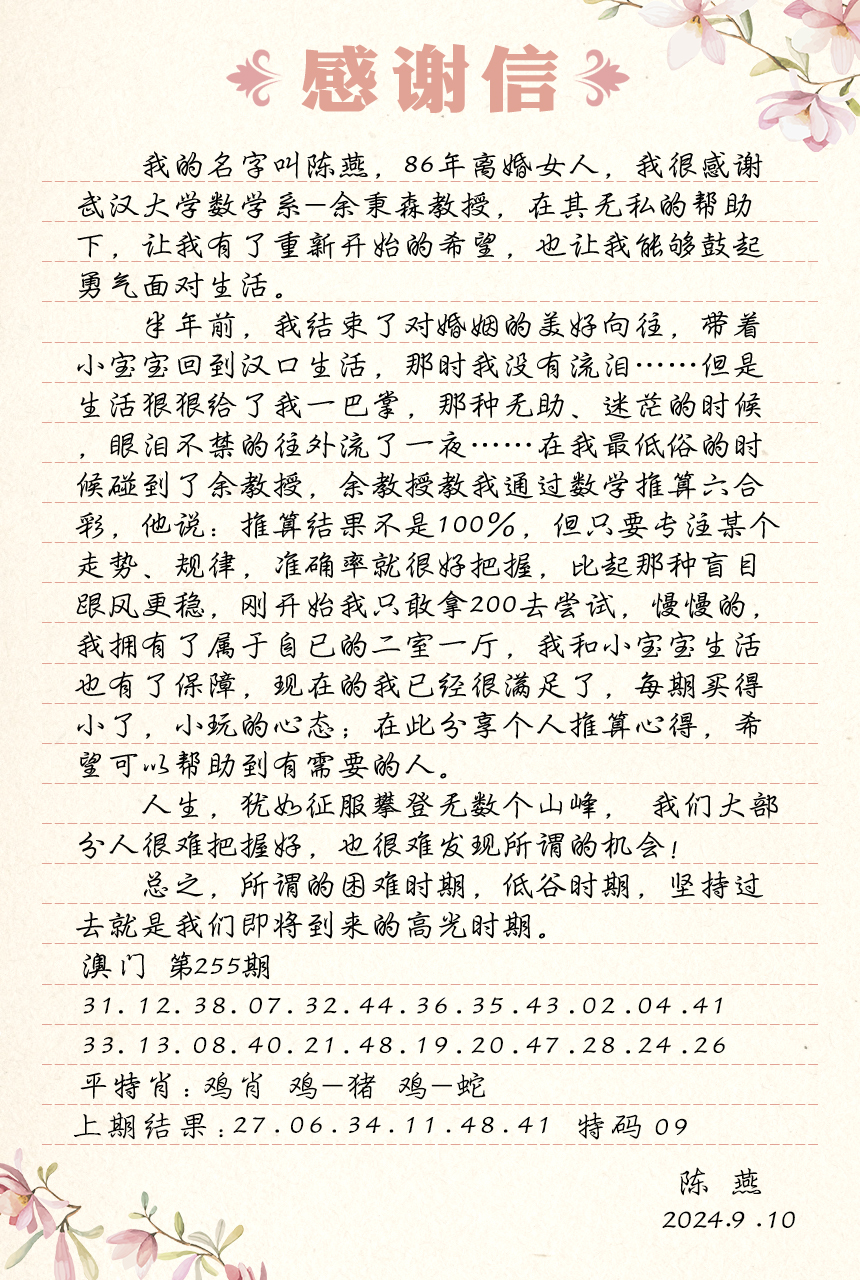 感谢信
我的名字叫陈燕，86年离婚女人，我很感谢
武汉大学数学系—余秉森教授，在其无私的帮助
下，让我有了重新开始的希望，也让我能够鼓起
勇气面对生活。
半年前，我结束了对婚姻的美好向往，带着
小宝宝回到汉口生活，那时我没有流泪……但是
生活狠狠给了我一巴掌，那种无助、迷茫的时候
，眼泪不禁的往外流了一夜……在我最低俗的时
候碰到了余教授，余教授教我通过数学推算六合
彩，他说：推算结果不是100%，但只要专注某个
走势、规律，准确率就很好把握，比起那种盲目
跟风更稳，刚开始我只敢拿200去尝试，慢慢的，
我拥有了属于自已的二室一厅，我和小宝宝生活
也有了保障，现在的我已经很满足了，每期买得
小了，小玩的心态；在此分享个人推算心得，希
望可以帮助到有需要的人。
人生，犹如征服攀登无数个山峰， 我们大部
分人很难把握好，也很难发现所谓的机会！
总之，所谓的困难时期，低谷时期，坚持过
去就是我们即将到来的高光时期。
澳门 第255期
31.12.38.07.32.44.36.35.43.02.04.41
33.13.08.40.21.48.19.20.47.28.24.26
平特肖：鸡肖 鸡—猪 鸡—蛇
上期结果：27.06.34.11.48.41 特码 09
陈 燕
2024.9.10